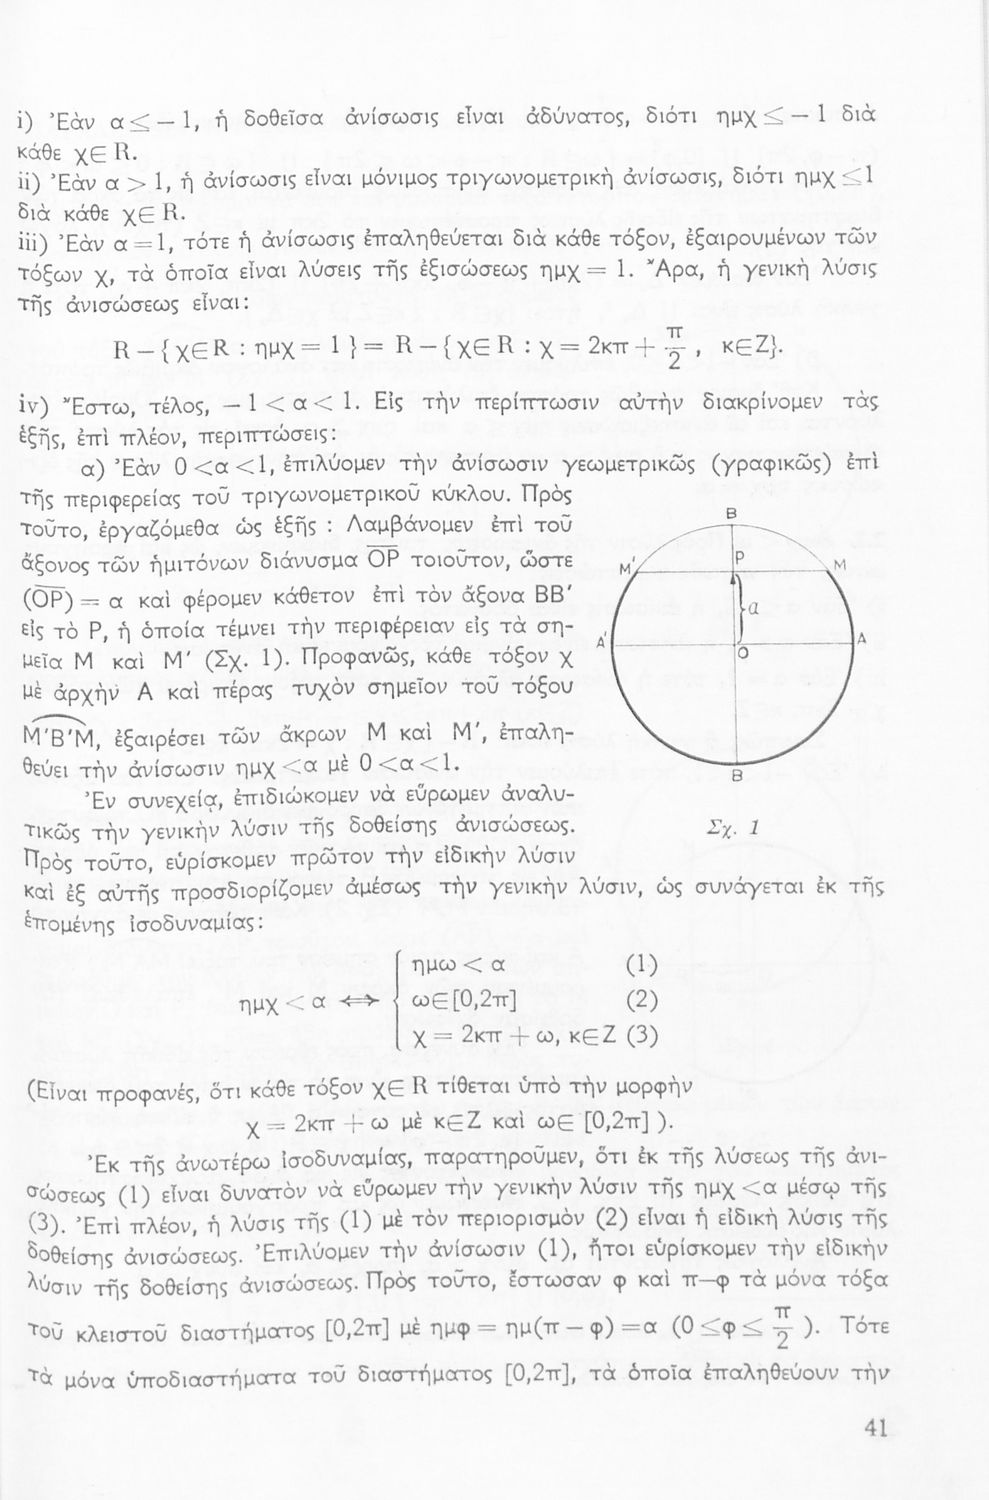 i) Ἐὰν α ≤ — 1, ἡ δοθεῖσα ἀνίσωσις εἶναι ἀδύνατος, διότι ημχ ≤ — 1 διὰ
κάθε χ∈R.
ii) Ἐὰν α > 1, ἡ ἀνίσωσις εἶναι μόνιμος τριγωνομετρικὴ ἀνίσωσις, διότι ημχ ≤1
διὰ κάθε χ∈R.
iii) Ἐὰν α = 1, τότε ἡ ἀνίσωσις ἐπαληθεύεται διὰ κάθε τόξον, ἐξαιρουμένων τῶν
τόξων χ, τὰ ὁποῖα εἶναι λύσεις τῆς ἐξισώσεως ημχ = 1. Ἄρα, ἡ γενικὴ λύσις
τῆς ἀνισώσεως εἶναι:
R – {χ∈R : ημχ = 1 } = R – {χ∈R : χ = 2κπ + π/2 , κ∈Z}.
iv) Ἔστω, τέλος, — 1 < α < 1. Εἰς τὴν περίπτωσιν αὐτὴν διακρίνομεν τὰς
ἑξῆς, ἐπὶ πλέον, περιπτώσεις:
α) Ἐὰν 0 <α <1, ἐπιλύομεν τὴν ἀνίσωσιν γεωμετρικῶς (γραφικῶς) ἐπὶ
τῆς περιφερείας τοῦ τριγωνομετρικοῦ κύκλου. Πρὸς
τοῦτο, ἐργαζόμεθα ὡς ἑξῆς : Λαμβάνομεν ἐπὶ τοῦ
ἄξονος τῶν ἡμιτόνων διάνυσμα O̅P̅ τοιοῦτον, ὥστε
(O̅P̅) = α καὶ φέρομεν κάθετον ἐπὶ τὸν ἄξονα ΒΒ'
εἰς τὸ Ρ, ἡ ὁποία τέμνει τὴν περιφέρειαν εἰς τὰ ση-
μεῖα Μ καὶ Μ' (Σχ. 1). Προφανῶς, κάθε τόξον χ
μὲ ἀρχὴν Α καὶ πέρας τυχὸν σημεῖον τοῦ τόξου
Μ'Β'Μ, ἐξαιρέσει τῶν ἄκρων Μ καὶ Μ', ἐπαλη-
θεύει τὴν ἀνίσωσιν ημχ <α μὲ 0 <α<1.
B
M'
P
M
α
A'
A
O
B
Σχ. 1
Ἐν συνεχείᾳ, ἐπιδιώκομεν νὰ εὕρωμεν ἀναλυ-
τικῶς τὴν γενικὴν λύσιν τῆς δοθείσης ἀνισώσεως.
Πρὸς τοῦτο, εὑρίσκομεν πρῶτον τὴν εἰδικὴν λύσιν
καὶ ἐξ αὐτῆς προσδιορίζομεν ἀμέσως τὴν γενικὴν λύσιν, ὡς συνάγεται ἐκ τῆς
ἑπομένης ἰσοδυναμίας:
ημω < α (1)
ημχ < α ⟺ { ω∈[0,2π] (2)
χ = 2κπ + ω, κ∈Z (3)
(Εἶναι προφανές, ὅτι κάθε τόξον χ∈ R τίθεται ὑπὸ τὴν μορφὴν
χ = 2κπ + ω μὲ κ∈Z καὶ ω∈ [0,2π] ).
Ἐκ τῆς ἀνωτέρω ἰσοδυναμίας, παρατηροῦμεν, ὅτι ἐκ τῆς λύσεως τῆς ἀνι-
σώσεως (1) εἶναι δυνατὸν νὰ εὕρωμεν τὴν γενικὴν λύσιν τῆς ημχ <α μέσῳ τῆς
(3). Ἐπὶ πλέον, ἡ λύσις τῆς (1) μὲ τὸν περιορισμὸν (2) εἶναι ἡ εἰδικὴ λύσις τῆς
δοθείσης ἀνισώσεως. Ἐπιλύομεν τὴν ἀνίσωσιν (1), ἤτοι εὑρίσκομεν τὴν εἰδικὴν
λύσιν τῆς δοθείσης ἀνισώσεως. Πρὸς τοῦτο, ἔστωσαν φ καὶ π—φ τὰ μόνα τόξα
τοῦ κλειστοῦ διαστήματος [0,2π] μὲ ημφ = ημ(π — φ) =α (0 ≤φ≤ π/2 ). Τότε
τὰ μόνα ὑποδιαστήματα τοῦ διαστήματος [0,2π], τὰ ὁποῖα ἐπαληθεύουν τὴν
41